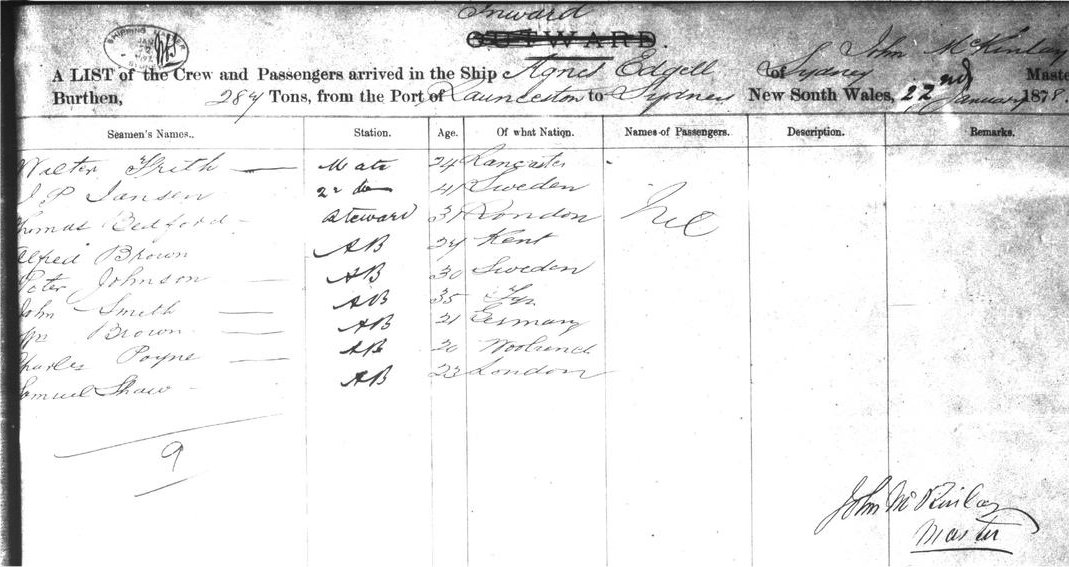 Inward
OUTWARD.
SHIPPING MASTER
John McKinlay
A LIST of the Crew and Passengers arrived in the Ship Agnes Edgell of Sydney Maste
Burthen, 284 Tons, from the Port of Launceston to Sydney New South Wales, 22nd January 1878.
Seamen's Names.. Station. Age. Of what Nation. Names of Passengers. Description. Remarks.
Walter Frith Mate 24 Lancaster
J P Jansen 2nd do 41 Sweden
Thomas Bedford Steward 31 London Nil
Alfred Brown AB 24 Kent
Peter Johnson AB 30 Sweden
John Smith AB 35
Wm Brown AB 21 Germany
Charles Payne AB 20
Samuel Shaw AB 23 London
9
John McKinlay
Master